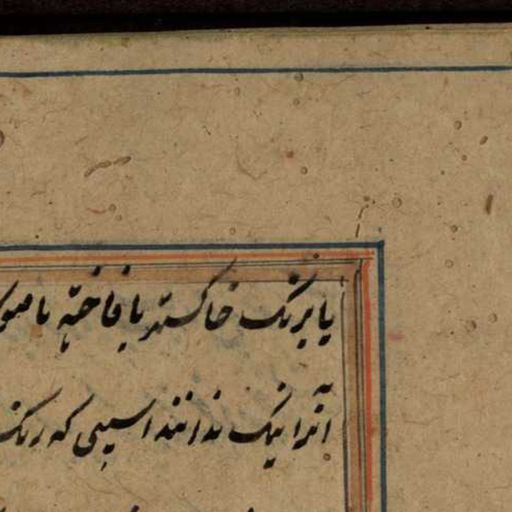 یا برنک خاکستر یا فاخته یا صو
آنرا نیک ندانند اسپی که رنک